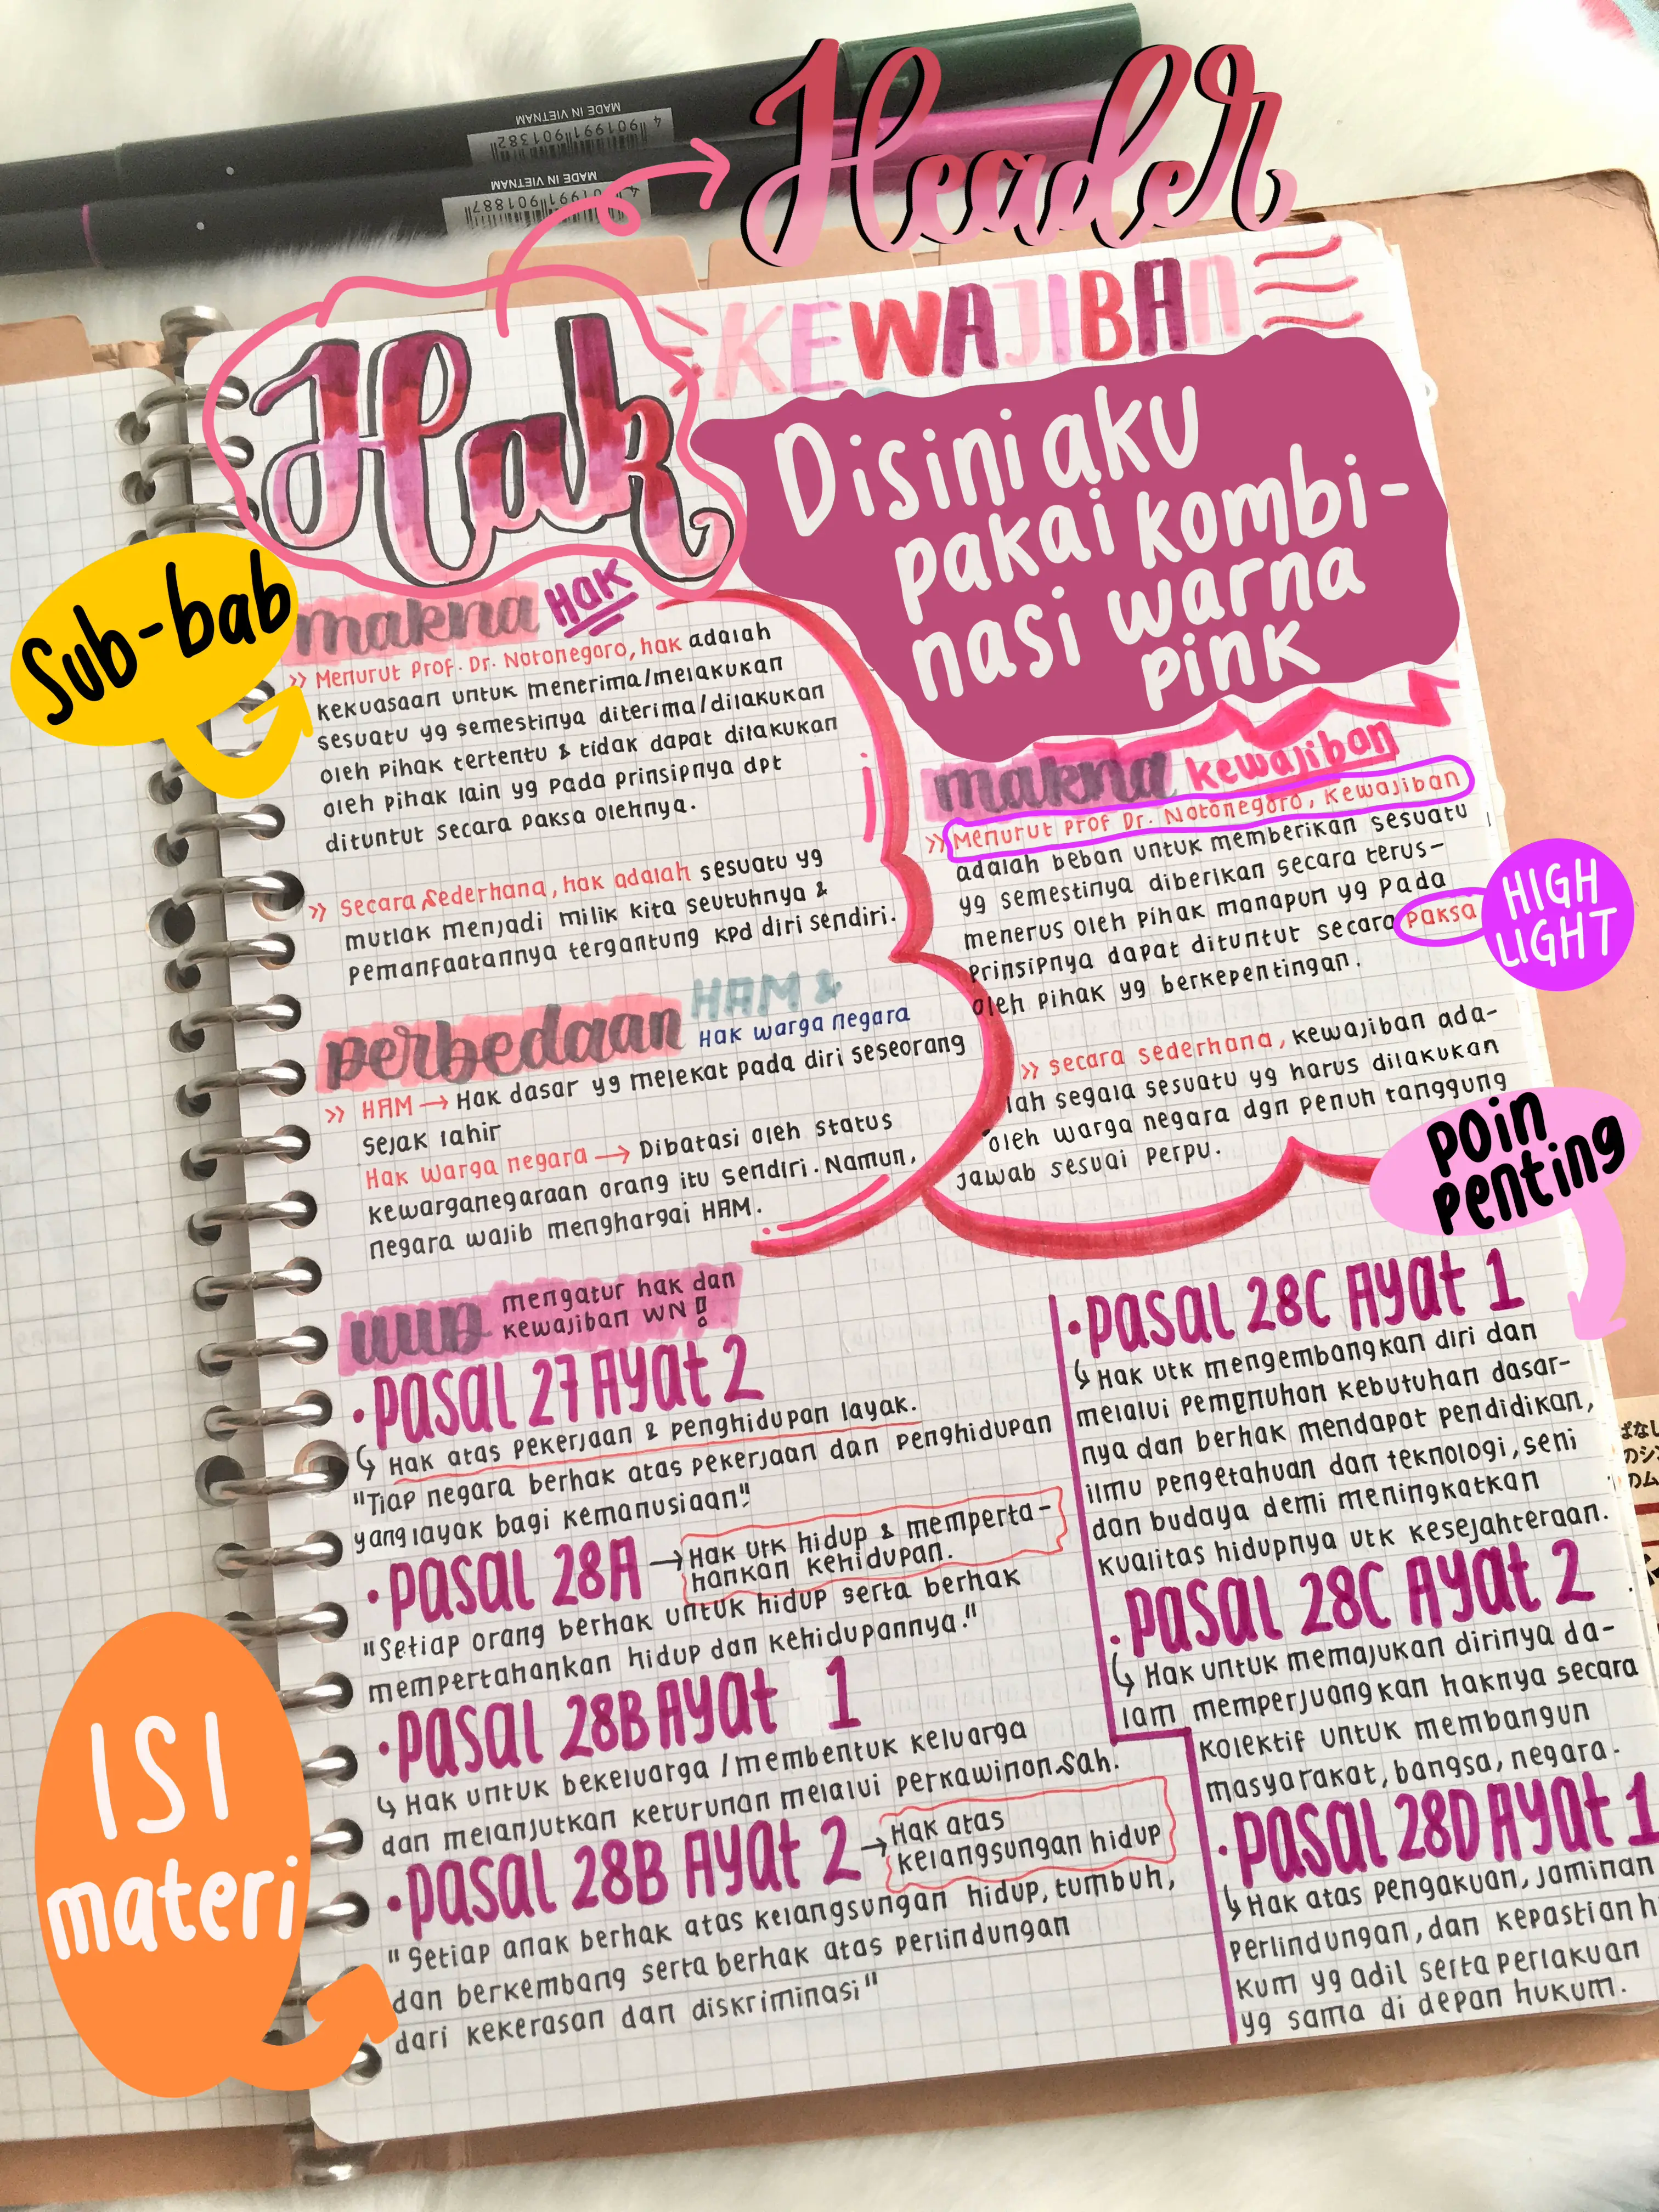 MADE IN VIETNAM
4 901991 901382
MADE IN VIETNAM
901887
Header
Hak
KEWAJIBAN
Disini aku
pakai kombi-
nasi warna
pink
Sub-bab
makna Hak
>> Menurut Prof. Dr. Notonegoro, hak adalah
kekuasaan untuk menerima/melakukan
sesuatu yg semestinya diterima/dilakukan
oleh pihak tertentu & tidak dapat dilakukan
oleh pihak lain yg pada prinsipnya dpt
dituntut secara paksa olehnya.
>> Secara Sederhana, hak adalah sesuatu yg
mutlak menjadi milik kita seutuhnya &
pemanfaatannya tergantung kpd diri sendiri.
perbedaan HAM &
Hak warga negara
>> HAM → Hak dasar yg melekat pada diri seseorang
sejak lahir
Hak warga negara → Dibatasi oleh status
kewarganegaraan orang itu sendiri. Namun,
negara wajib menghargai HAM.
makna kewajiban
>> Menurut Prof Dr. Notonegoro, kewajiban
adalah beban untuk memberikan sesuatu
yg semestinya diberikan secara terus-
menerus oleh pihak manapun yg pada
prinsipnya dapat dituntut secara paksa
oleh pihak yg berkepentingan.
HIGH
LIGHT
>> secara sederhana, kewajiban ada-
lah segala sesuatu yg harus dilakukan
oleh warga negara dgn penuh tanggung
jawab sesuai perpu.
poin
penting
UUD mengatur hak dan
kewajiban WN!
• Pasal 27 Ayat 2
↳ Hak atas pekerjaan & penghidupan layak.
"Tiap negara berhak atas pekerjaan dan penghidupan
yang layak bagi kemanusiaan"
• Pasal 28A → Hak utk hidup & memperta-
hankan kehidupan.
"Setiap orang berhak untuk hidup serta berhak
mempertahankan hidup dan kehidupannya."
• Pasal 28B Ayat 1
↳ Hak untuk bekeluarga / membentuk keluarga
dan melanjutkan keturunan melalui perkawinan sah.
• Pasal 28B Ayat 2 → Hak atas
kelangsungan hidup
"Setiap anak berhak atas kelangsungan hidup, tumbuh,
dan berkembang serta berhak atas perlindungan
dari kekerasan dan diskriminasi"
ISI
materi
• Pasal 28C Ayat 1
↳ Hak utk mengembangkan diri dan
melalui pemenuhan kebutuhan dasar-
nya dan berhak mendapat pendidikan,
ilmu pengetahuan dan teknologi, seni
dan budaya demi meningkatkan
kualitas hidupnya utk kesejahteraan.
• Pasal 28C Ayat 2
↳ Hak untuk memajukan dirinya da-
lam memperjuangkan haknya secara
kolektif untuk membangun
masyarakat, bangsa, negara.
• Pasal 28D Ayat 1
↳ Hak atas pengakuan, jaminan
perlindungan, dan kepastian h
kum yg adil serta perlakuan
yg sama di depan hukum.